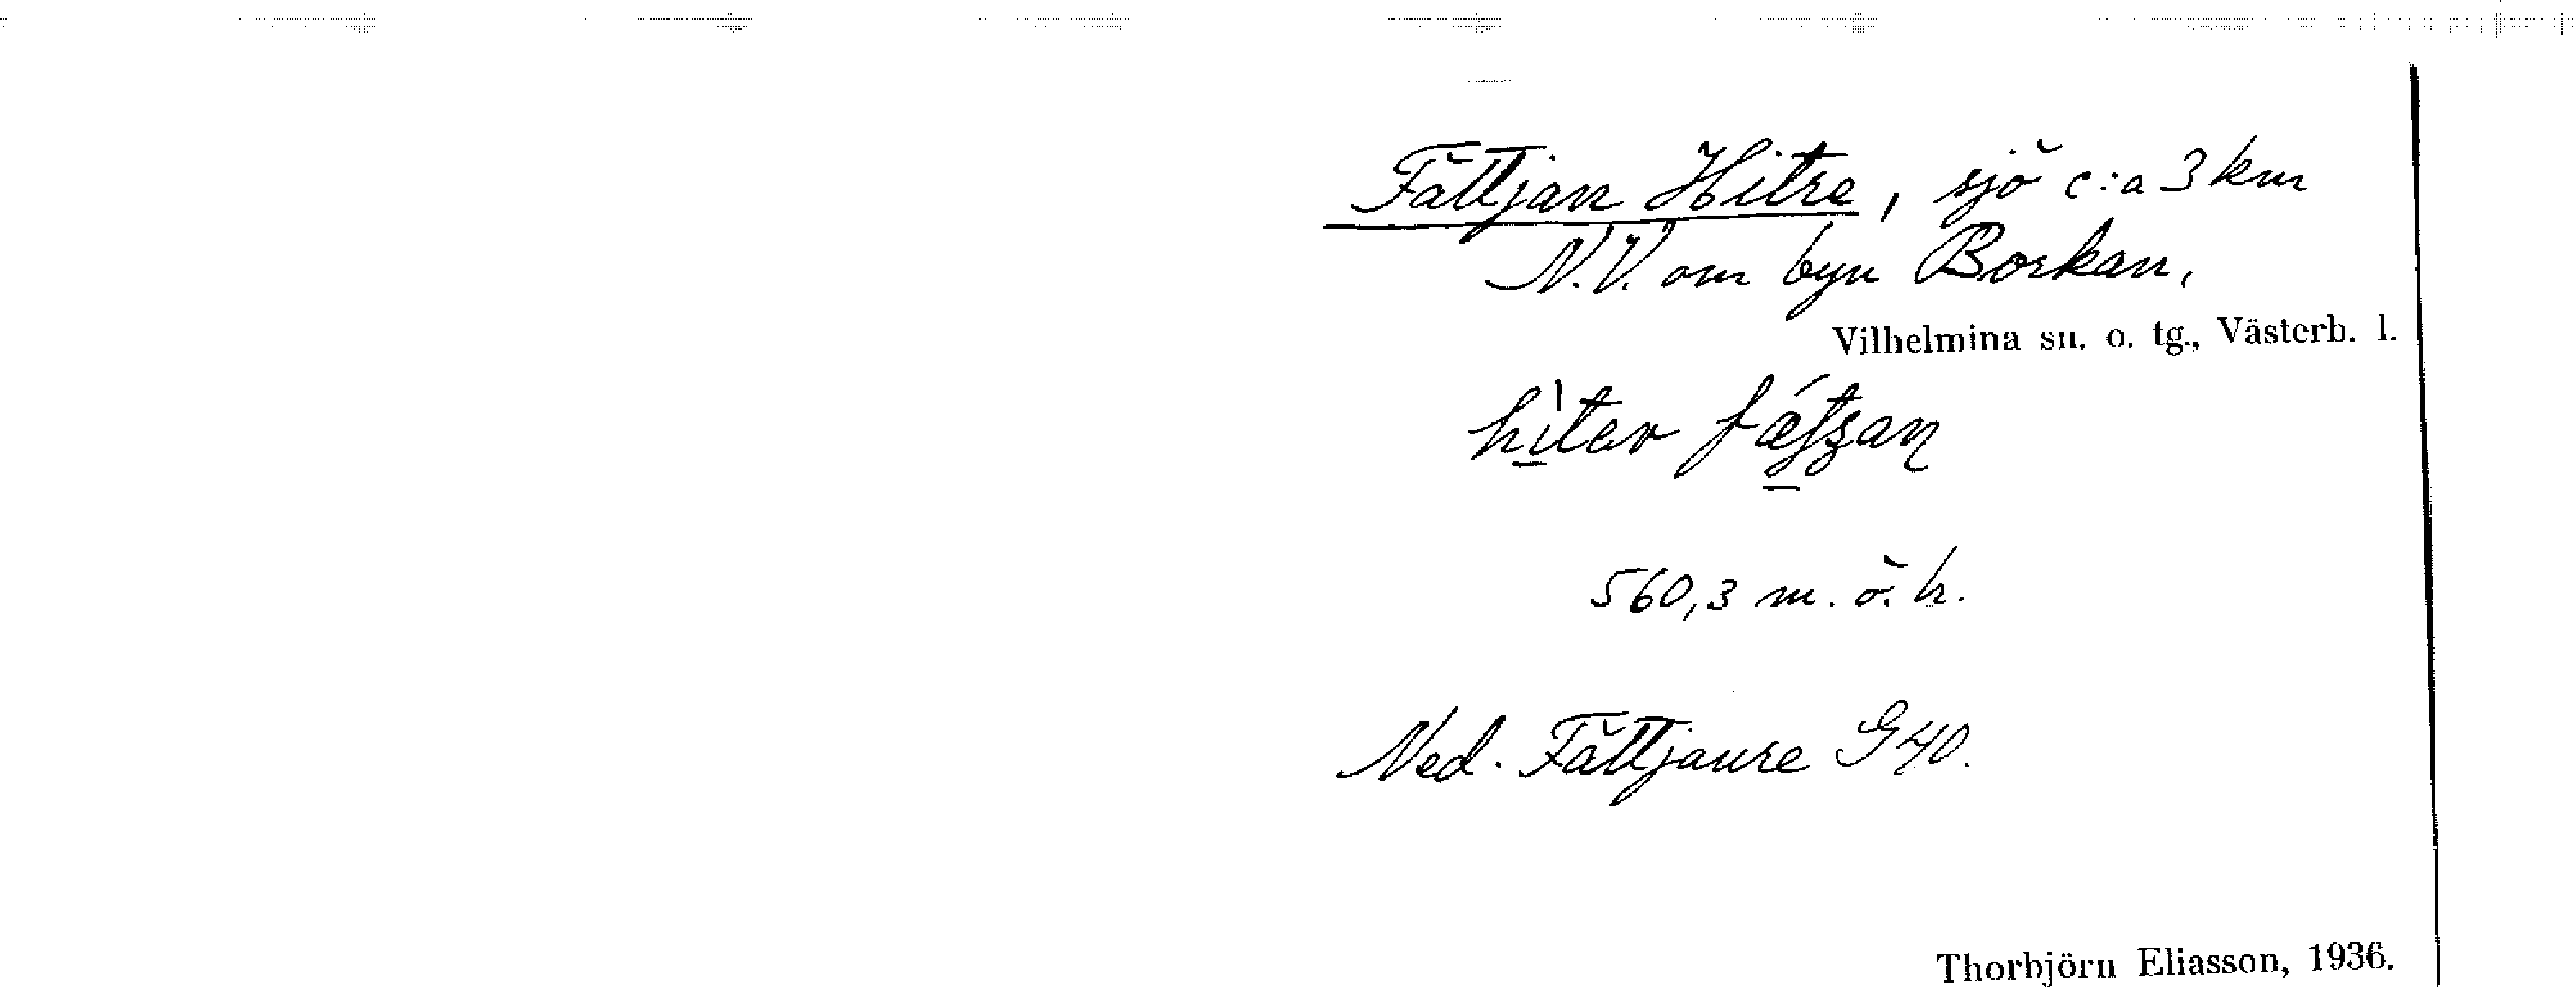 Fättjan Hitre, sjö c:a 3 km
N.V. om byn Borkan,
Vilhelmina sn. o. tg., Västerb. l.
hiter
560,3 m. ö. h.
Ned. Fättjaure G40.
Thorbjörn Eliasson, 1936.